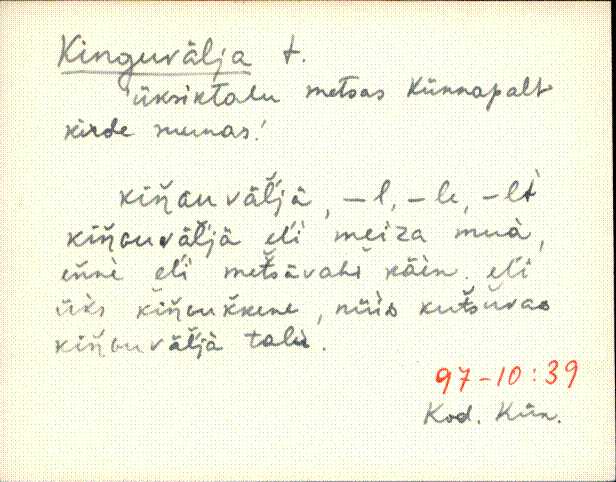 Kinguvälja t.
üksiktalu metsas Künnapalt
kirde munas!
kiŋ̆ɢuväĺjä, –l, –le, –lt
kiŋ̆ɢuväĺjä eĺi meiza muà,
eńne eĺi metšävahi käen. eĺi
üks kiŋ̆ɢukkene, nüid kutšuvad
kiŋ̆ɢuväĺjä talu.
97–10:39
Kod. Kün.